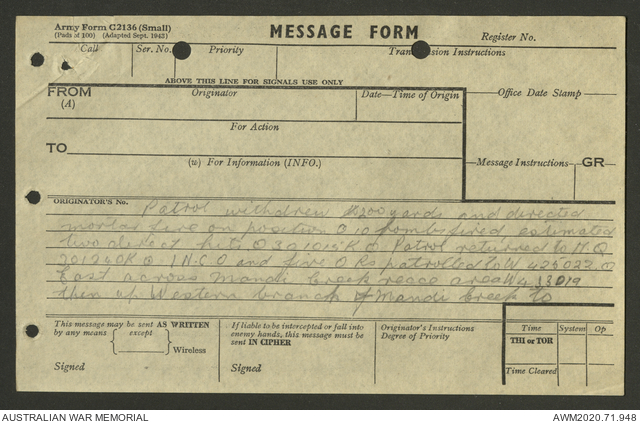 Army Form C2136 (Small)
(Pads of 100) (Adapted Sept. 1942)
MESSAGE FORM
Register No.
Call
Ser. No.
Priority
Instructions
ABOVE THIS LINE FOR SIGNALS USE ONLY
FROM
(A)
Originator
Date—Time of Origin
Office Date Stamp
For Action
TO
(w) For Information (INFO.)
Message Instructions
GR
ORIGINATOR'S No.
Patrol withdrew 200 yards and directed
mortar fire on position O 10 bombs fired estimated
two direct hits O 301015K O Patrol returned to H.Q
301240K O 1 N.C.O and five O Rs patrolled to W 425022 O
East across Mandi Creek recce area W 413019
then up Western branch of Mandi Creek to
This message may be sent AS WRITTEN
by any means
except
Wireless
Signed
If liable to be intercepted or fall into
enemy hands, this message must be
sent IN CIPHER
Signed
Originator's Instructions
Degree of Priority
Time
System
Op
THI or TOR
Time Cleared
AUSTRALIAN WAR MEMORIAL
AWM2020.71.948